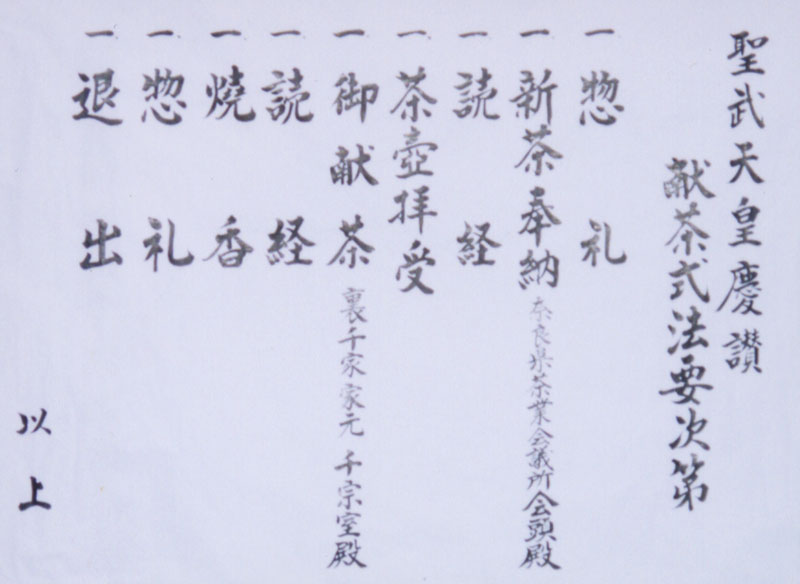 聖武天皇慶讃
献茶式法要次第
一 惣礼
一 新茶奉納 奈良県茶業会議所会頭殿
一 読経
一 茶壺拝受
一 御献茶 裏千家家元 千宗室殿
一 読経
一 焼香
一 惣礼
一 退出
以上